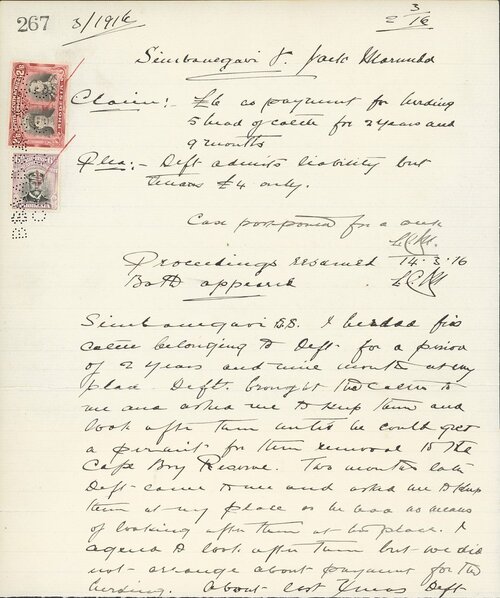 267
3/1916
2 3/16
Simbanegavi v. Jack Marumbo
Claim:- £6 as payment for herding
5 head of cattle for 2 years and
9 months
Plea:- Deft admits liability but
tenders £4 only.
Case postponed for a week
Proceedings resumed 14.3.16
Both appeared
Simbanegavi s.s. I herded five
cattle belonging to Deft for a period
of 2 years and nine months at my
place. Deft. brought the cattle to
me and asked me to keep them and
look after them until he could get
a permit for their removal to the
Cape Boy Reserve. Two months later
Deft came to me and asked me to keep
them at my place as he had no means
of looking after them at his place. I
agreed to look after them but we did
not arrange about payment for the
herding. About last Xmas Deft